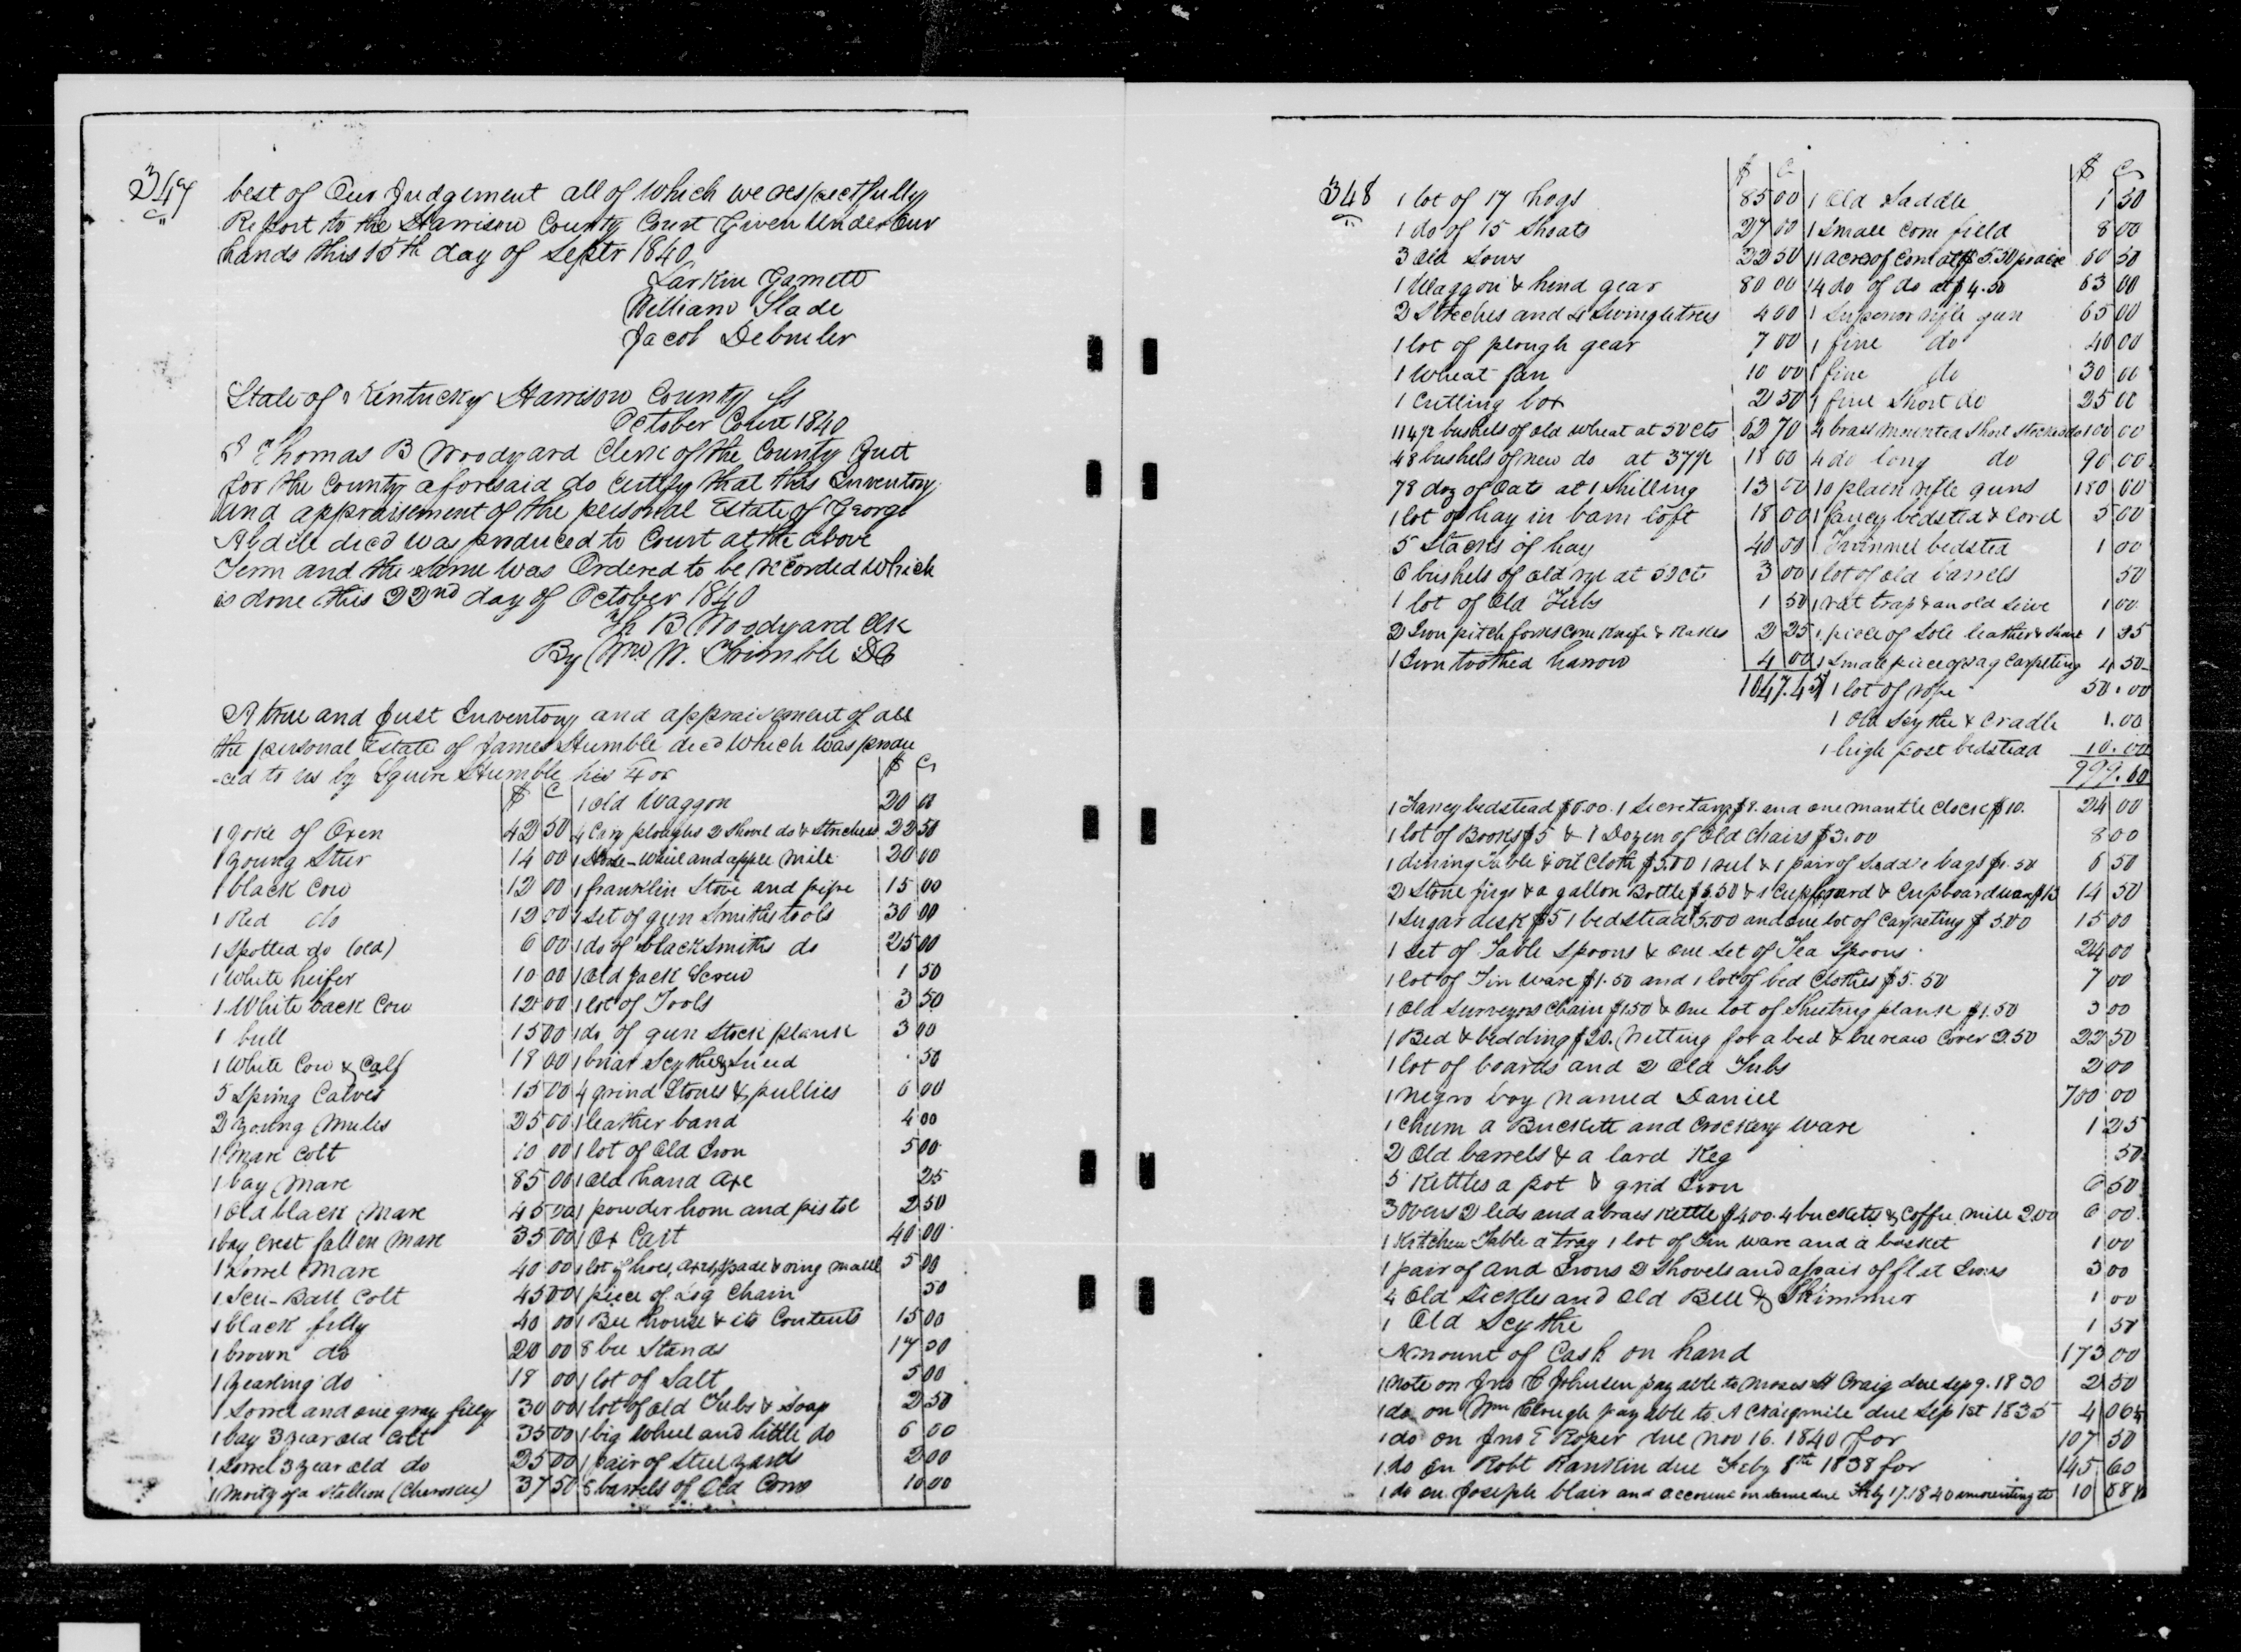 347
best of Our Judgement all of which we respectfully
Report to the Harrison County Court Given Under Our
hands this 15th day of Septr 1840
Larkin Garnett
William Slade
Jacob
State of Kentucky Harrison County Ss
October Court 1840
I Thomas B Woodyard Clerk of the County Court
for the County aforesaid do Certify that this Inventory
and appraisement of the personal Estate of George
decd was produced to Court at the above
Term and the same was Ordered to be recorded which
is done this 22nd day of October 1840
Th B Woodyard Clk
By Wm W. Trimble DC
A true and Just Inventory and appraisement of all
the personal Estate of James Humble decd which was produ
-ced to us by Squire Humble his
$ C 1 old Waggon $ C 20 00
1 yoke of Oxen 42 50 4 Cary ploughs 2 Shovel do & Strechers 22 50
1 young Steer 14 00 1 wheel and apple Mill 20 00
1 black Cow 12 00 1 franklin Stove and pipe 15 00
1 Red do 12 00 1 Set of gun Smiths tools 30 00
1 Spotted do (old) 6 00 1 do of blackSmiths do 25 00
1 White heifer 10 00 1 Old Jack Screw 1 50
1 White back Cow 12 00 1 lot of Tools 3 50
1 bull 15 00 1 do of gun Stock plank 3 00
1 White Cow & Calf 18 00 1 briar Scythe & Snead 50
5 Spring Calves 15 00 4 grind Stones & pullies 6 00
2 young Mules 25 00 1 leather band 4 00
1 Mare Colt 10 00 1 lot of Old Iron 5 00
1 bay Mare 85 00 1 Old hand Axe 25
1 Old black Mare 45 00 1 powder horn and pistol 2 50
1 bay Crest fallen Mare 35 00 1 Ox Cart 40 00
1 Sorrel Mare 40 00 1 lot of hoes, axes, Spade & ring maul 5 00
1 Colt 45 00 1 piece of Log Chain 50
1 black filly 40 00 1 Bee house & its Contents 15 00
1 brown do 20 00 8 bee Stands 17 50
1 yearling do 18 00 1 lot of Salt 5 00
1 Sorrel and one gray filly 30 00 1 lot of Old Tubs & Soap 2 50
1 bay 3 year old Colt 35 00 1 big Wheel and little do 6 00
1 Sorrel 3 year old do 25 00 1 pair of Steelyards 2 00
1 Moity of a Stallion (Cherokee) 37 50 5 barrels of Old Corn 10 00
348
$ C $ C
1 lot of 17 hogs 85 00 1 Old Saddle 1 50
1 do of 15 Shoats 27 00 1 Small Corn field 8 00
3 Old Sows 22 50 11 acres of Corn at $5.50 pr acre 60 50
1 Waggon & hind gear 80 00 14 do of do at $4.50 63 00
2 Streches and 4 Swingletrees 4 00 1 Superior rifle gun 65 00
1 lot of plough gear 7 00 1 fine do 40 00
1 Wheat fan 10 00 1 fine do 30 00
1 Cutting box 2 50 1 fine Short do 25 00
bushels of old Wheat at 50 cts 62 70 4 brass mounted Short Stocked do 100 00
48 bushels of new do at 37½ 18 00 4 do long do 90 00
78 doz of Oats at 1 Shilling 13 00 10 plain rifle guns 180 00
1 lot of hay in barn loft 18 00 1 fancy bedsted & Cord 5 00
5 Stacks of hay 40 00 1 bedsted 1 00
6 bushels of old rye at 50 cts 3 00 1 lot of old barrels 50
1 lot of Old Tubs 1 50 1 rat trap & an old Seive 1 00
2 Iron pitch forks Corn Knife & Rakes 2 25 1 piece of Sole leather & 1 25
1 Iron toothed harrow 4 00 1 Small piece of rag Carpeting 4 50
1047.45 1 lot of rope 50.00
1 Old Scythe & Cradle 1.00
1 high post bedstead 10.00
999.60
1 Fancy bedstead $6.00. 1 Secretary $8. and one mantle Clock $10. 24 00
1 lot of Books $5 & 1 Dozen of Old Chairs $3.00 8 00
1 dining Table & oil Cloth $5.00 1 reel & 1 pair of Saddle bags $1.50 6 50
2 Stone Jugs & a gallon Bottle $1.50 & 1 Cupboard & Cupboard ware $13 14 50
1 Sugar desk $5 1 bedstead $5.00 and one lot of Carpeting $5.00 15 00
1 Set of Table Spoons & one Set of Tea Spoons 24 00
1 lot of Tin Ware $1.50 and 1 lot of bed Clothes $5.50 7 00
1 Old Surveyors Chain $1.50 & One lot of Sheeting plank $1.50 3 00
1 Bed & bedding $20. Netting for a bed & bureau Cover 2.50 22 50
1 lot of boards and 2 Old Tubs 2 00
1 Negro boy Named Daniel 700 00
1 Churn a Buckett and Crockery Ware 1 25
2 Old barrels & a lard Keg 50
5 Kettles a pot & grid Iron 6 50
3 Ovens 2 leds and a brass Kettle $4.00. 4 buckets & Coffee Mill 2.00 6 00
1 Kitchen Table a tray 1 lot of Tin Ware and a basket 1 00
1 pair of And Irons 2 Shovels and a pair of flat Irons 3 00
4 Old Sickles and Old Bell & Skimmer 1 00
1 Old Scythe 1 50
Amount of Cash on hand 173 00
1 Note on Jno C Johnson payable to Moses H Craig due Sep 9. 1830 2 50
1 do on Wm Clough payable to A Craigmile due Sep 1st 1835 4 06¼
1 do on Jno T Roper due Nov 16. 1840 for 107 50
1 do on Robt Rankin due Feby 8th 1838 for 145 60
1 do on Joseph blair and account on Same due Feby 17. 1840 amounting to 10 68